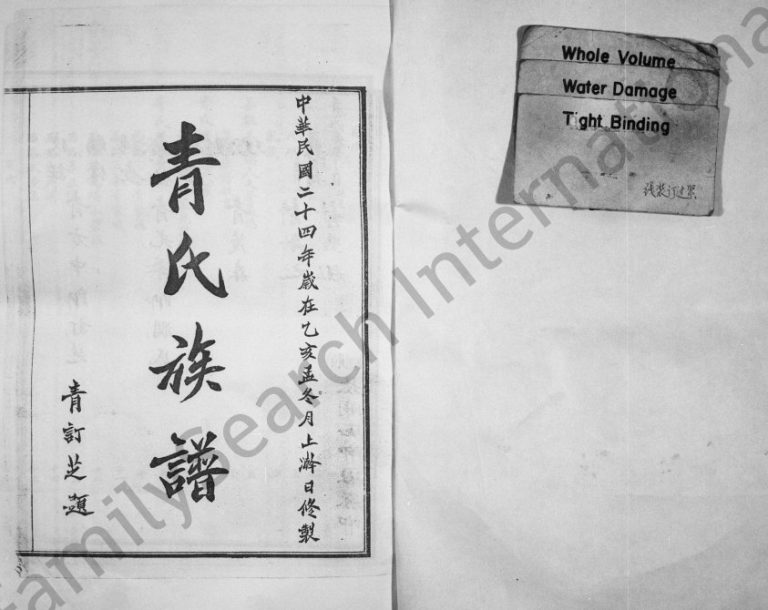 中華民國二十四年歲在乙亥孟冬月上澣日修製
青氏族譜
青訂芝題
Whole Volume
Water Damage
Tight Binding
FamilySearch International